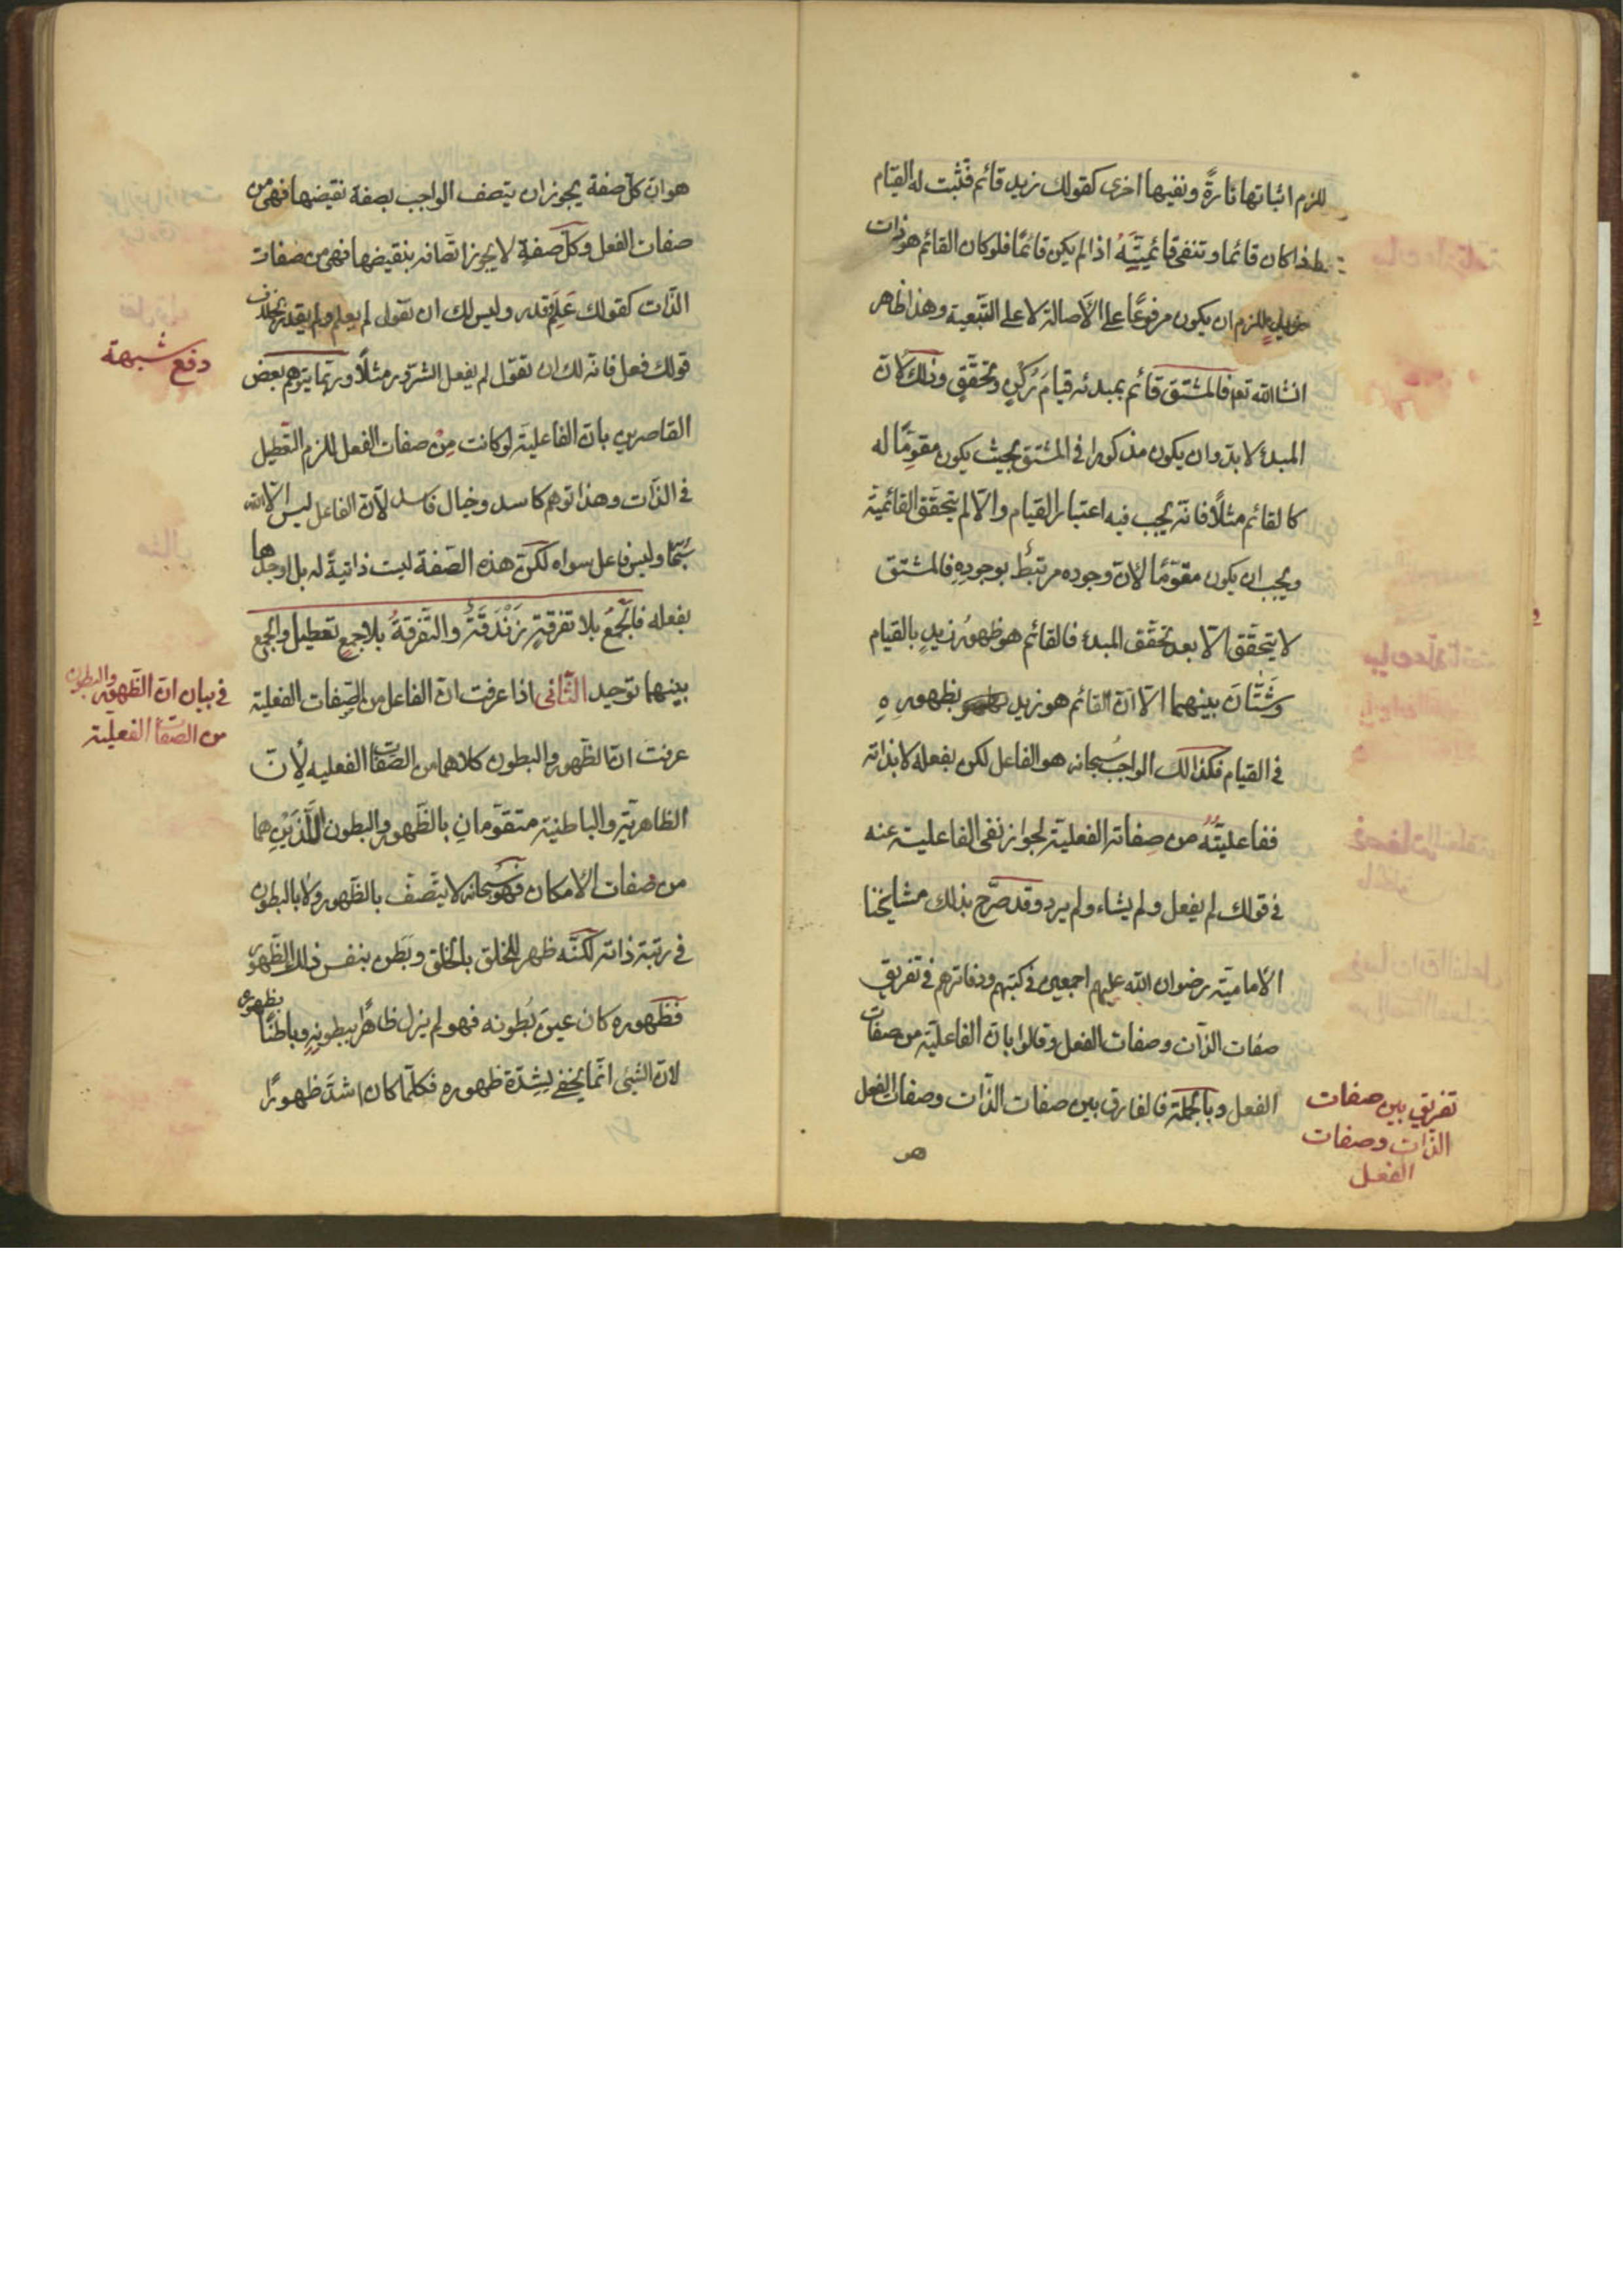 للزم اثباتها تارةً ونفيها اخرى كقولك زيد قائم فتثبت له القيام
اذا كان قائما وتنفى قائميّتَهُ اذا لم يكن قائمًا فلو كان القائم هو ذات
زيد للزم ان يكون مرفوعًا على الأصالة لا على التّبعية وهذا ظاهر
انشاالله تعه فالمشتق قائم بمبدئه قيامَ رُكنٍ وتحقّقٍ وذلك لانّ
المبدء لا بدّ وان يكون مذكورا فى المشتق بحيث يكون مقوِّمًا له
كالقائم مثلًا فانّه يجب فيه اعتبار القيام والّا لم يتحقّق القائميّة
ويجب ان يكون مقوّمًا لانّ وجوده مرتبطٌ بوجودِهِ فالمشتق
لا يتحقّق الّا بعد تحقّق المبدء فالقائم هو ظهورُ زيدٍ بالقيام
وشَتّانَ بينهما الّا انّ القائم هو زيد بظهورِهِ
فى القيام فكذالك الواجب سُبحانه هو الفاعل لكن بفعله لا بذاته
ففاعليّتُهُ من صِفاته الفعليّة لجواز نفى الفاعليـة عنه
فى قولك لم يفعل ولم يشاء ولم يرد وقد صرّح بذلك مشايخنا
الاماميّة رضوان الله عليهم اجمعين فى كتبهم ودفاترهم فى تفريق
صفات الذّات وصفات الفعل وقالوا بانّ الفاعليّة من صفات
الفعل وبالجملة فالفارق بين صفات الذّات وصفات الفعل
تفريق بين صفات
الذّات وصفات
الفعل
هو
هو انّ كلّ صفة يجوز ان يتصف الواجب بصفة نقيضها فهى من
صفات الفعل وكلّ صفةٍ لا يجوز اتّصافه بنقيضها فهى من صفات
الذّات كقولك عَلِمَ وقدر وليس لك ان تقول لم يعلم ولم يقدر بخلاف
قولك فعل فانّه لك ان تقول لم يفعل الشرّور مثلًا وربّما يتوهم بعض
دفع شبهة
القاصرين بانّ الفاعليّة لو كانت مِنْ صفات الفعل للزم التّعطيل
فى الذّات وهذا توهم كاسد وخيال فاسد لأنّ الفاعل ليس الّا الله
سُبحا وليس فاعل سواه لكنّ هذه الصّفة ليست ذاتيةً له بل اوجدها
بفعله فالجَمعُ بلا تفرقةٍ زَنْدَقَةٌ والتّفرقةُ بلا جمعٍ تعطيل والجمع
بينهما توحيد الثّانى اذا عرفت انّ الفاعل من الصّفات الفعلية
فى بيان انّ الظّهور والبطون
من الصّفات الفعليّة
عرفتَ انّ الظّهور والبطون كلاهما من الصّفات الفعليه لأنّ
الظاهريّة والباطنيّة متقوّمانِ بالظّهور والبطون اللّذَيْنِ هما
من صفات الامكان فهو سُبحانه لا يتّصف بالظّهور ولا بالبطون
فى رتبة ذاته لكنّه ظهر للخلق بالخلق وبَطَن بنفس ذلك الظّهور
فظهوره كان عينَ بُطونه فهو لم يزل ظاهرًا ببطونِهِ وباطنًا بظهوره
لانّ الشّيئ انّما يخفى لِشِدّة ظهوره فكلّما كان اشدّ ظهورًا